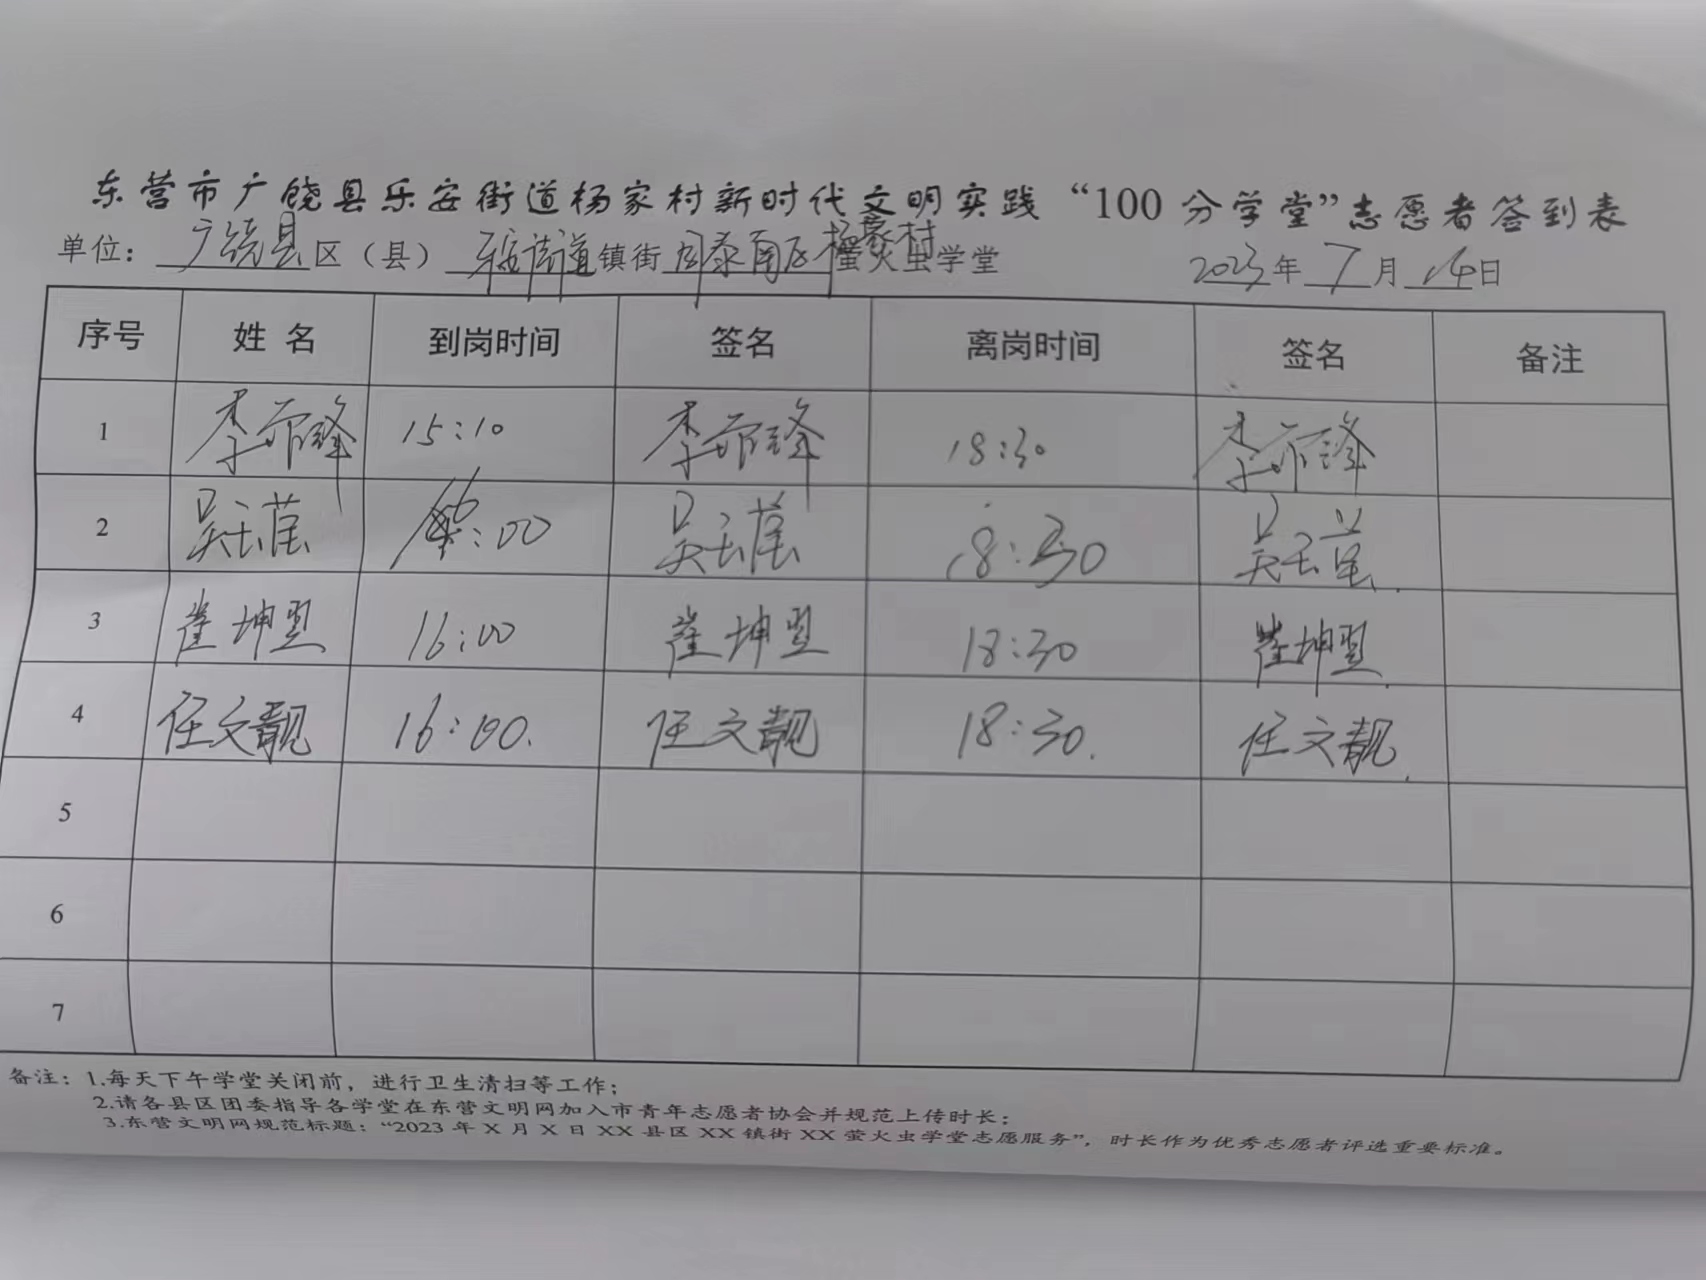 东营市广饶县乐安街道杨家村新时代文明实践“100分学堂”志愿者签到表
单位：广饶县区（县）乐安街道镇街 学堂 2023年7月14日
序号 姓名 到岗时间 签名 离岗时间 签名 备注
1 15:10 18:30
2 16:00 18:30
3 崔坤翌 16:00 崔坤翌 18:30 崔坤翌
4 任文靓 16:00. 任文靓 18:30. 任文靓.
5
6
7
备注：1.每天下午学堂关闭前，进行卫生清扫等工作；
2.请各县区团委指导各学堂在东营文明网加入市青年志愿者协会并规范上传时长；
3.东营文明网规范标题：“2023年X月X日XX县区XX镇街XX萤火虫学堂志愿服务”，时长作为优秀志愿者评选重要标准。